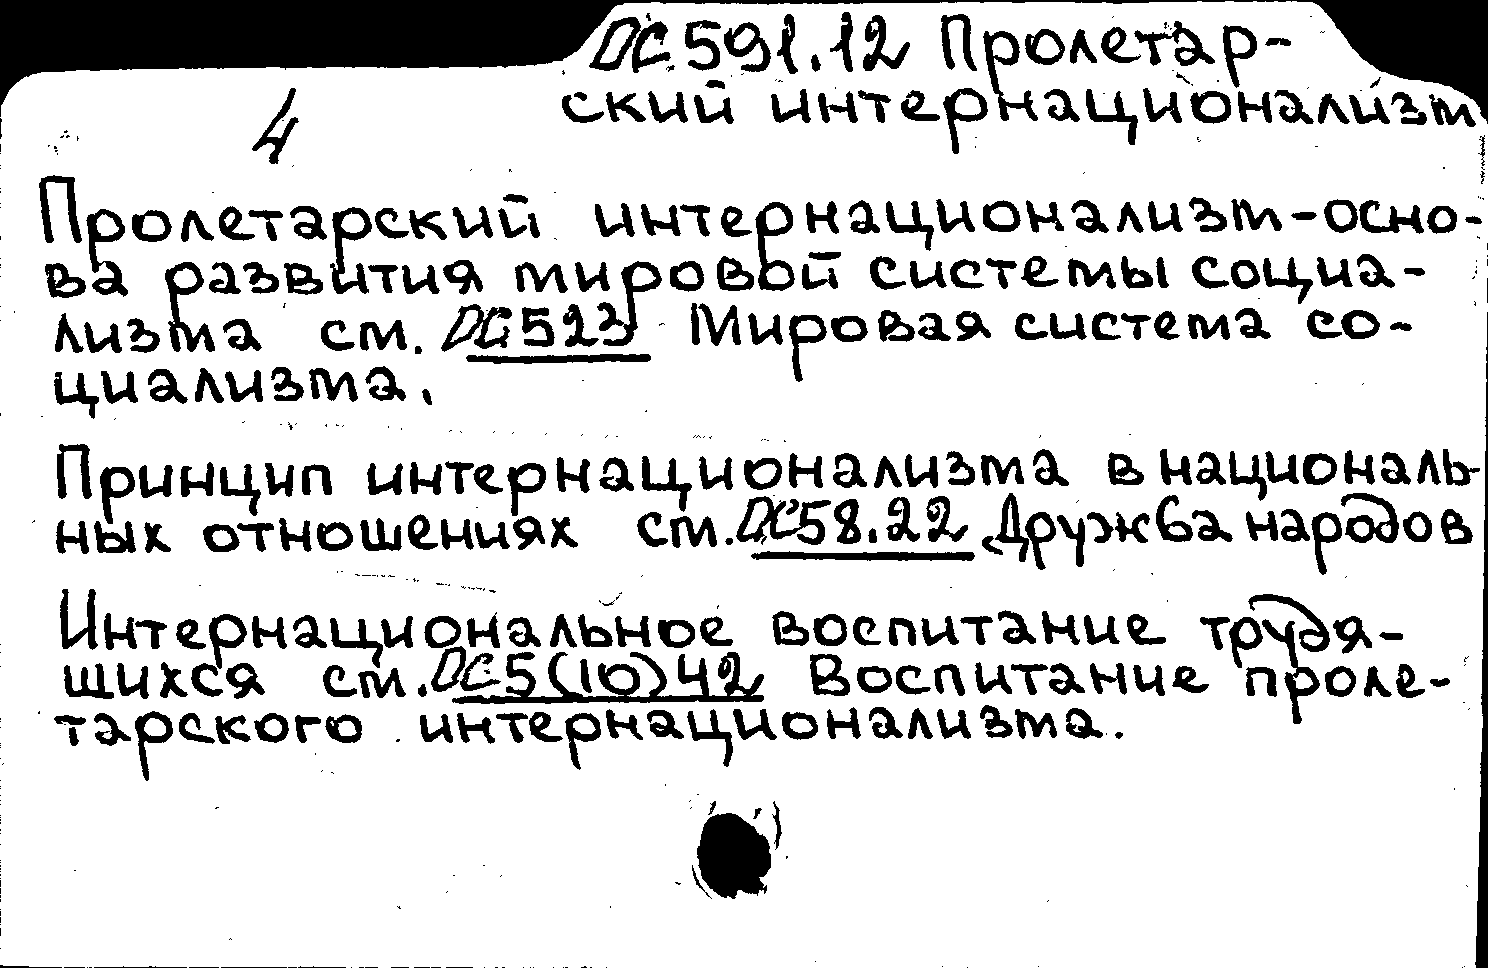 DC591.12 Пролетар-
ский интернационализм
4
Пролетарский интернационализм-осно-
ва развития мировой системы социа-
лизма см. DC523 Мировая система со-
циализма.
Принцип интернационализма в националь-
ных отношениях см. DC58.22 Дружба народов
Интернациональное воспитание трудя-
щихся см. DC5(10)42 Воспитание проле-
тарского интернационализма.